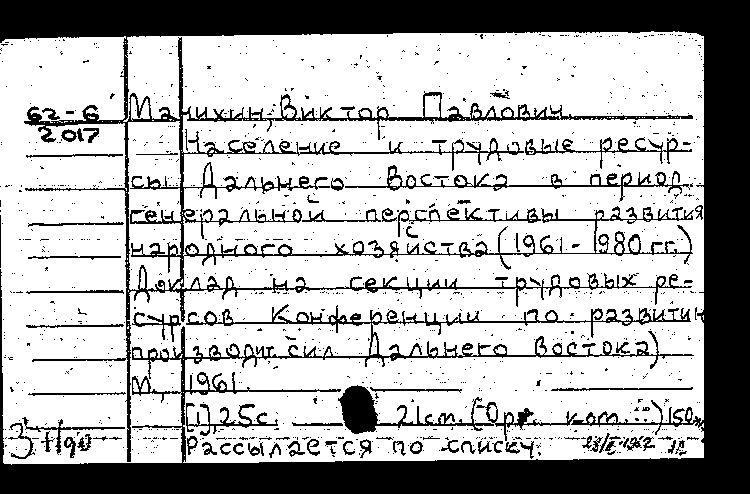 62-6 Манихин, Виктор Павлович.
2017
Население и трудовые ресур-
сы Дальнего Востока в период
генеральной перспективы развития
народного хозяйства (1961-1980 гг.)
Доклад на секции трудовых ре-
сурсов Конференции по развитию
производит. сил Дальнего Востока).
М., 1961.
[1], 25с. 21см. (Орг. ком. ...) 150
Рассылается по списку.